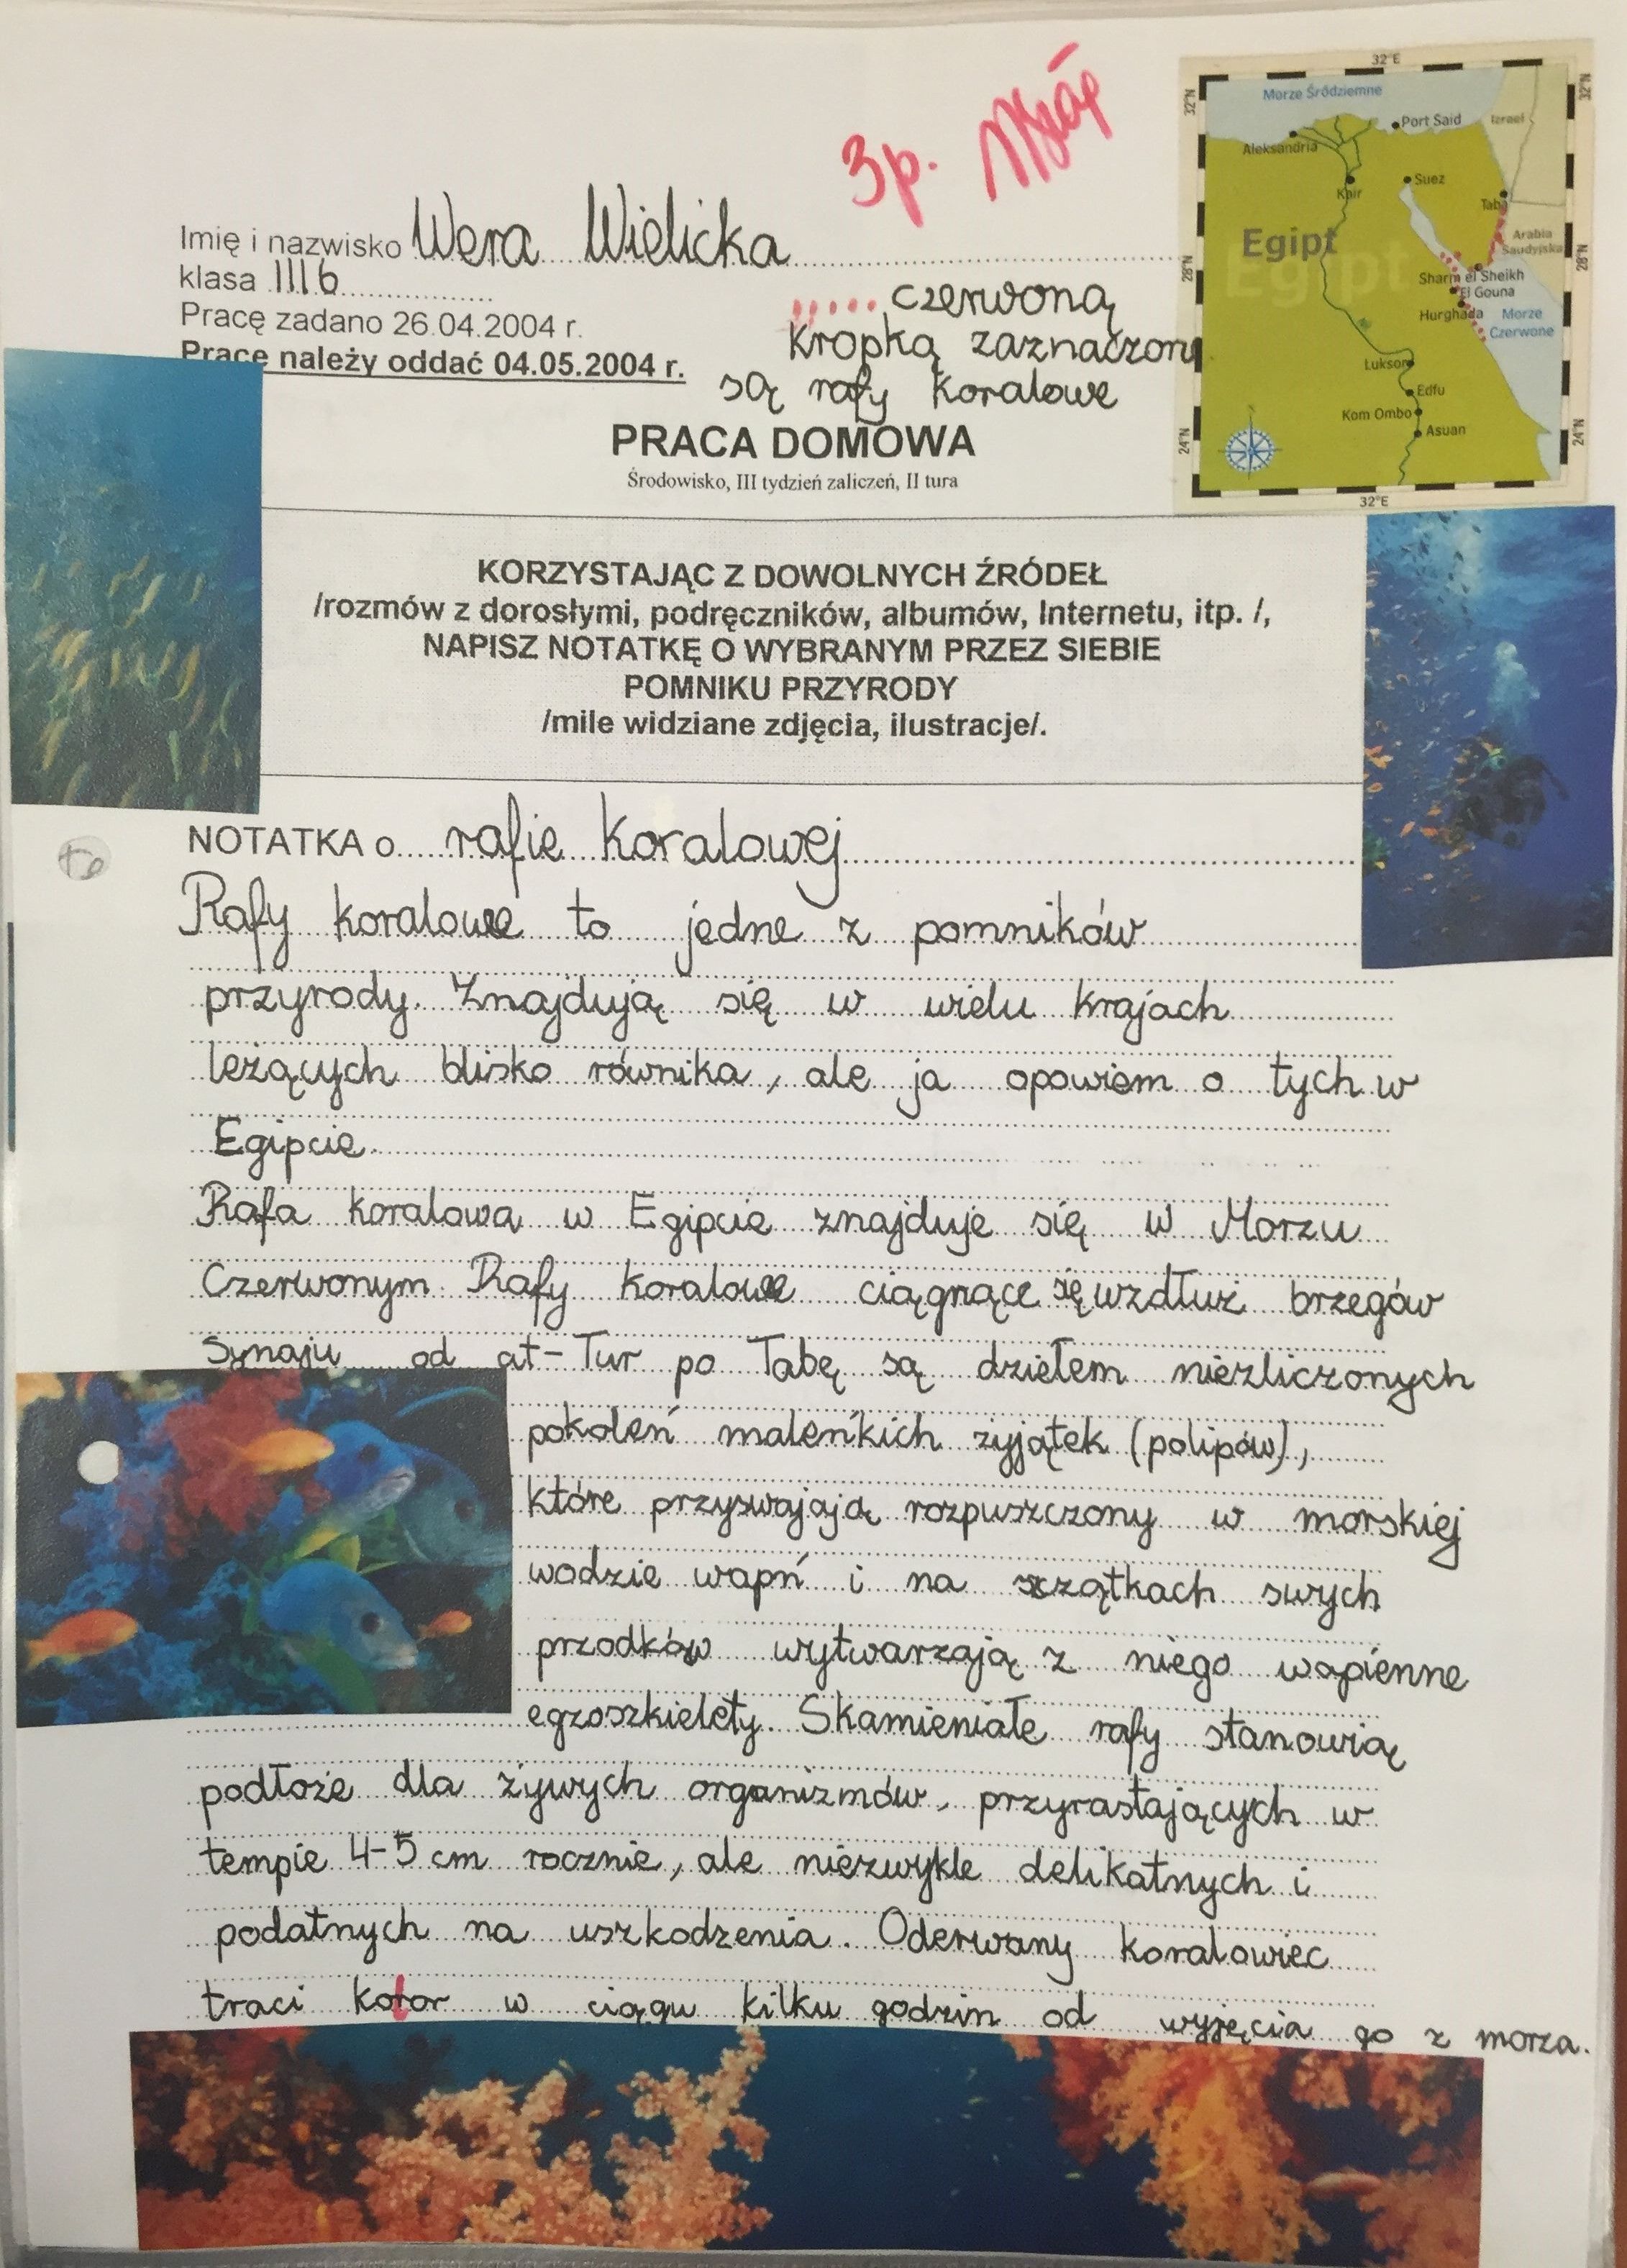 3p.
32°E
32°N
32°N
Morze Śródziemne
Port Said
Izrael
Aleksandria
Kair
Suez
Taba
Egipt
Arabia
Saudyjska
28°N
28°N
Sharm el Sheikh
El Gouna
Hurghada
Morze
Czerwone
Luksor
Edfu
Kom Ombo
Asuan
24°N
24°N
32°E
Imię i nazwisko Wera Wielicka
klasa III b
Pracę zadano 26.04.2004 r.
Pracę należy oddać 04.05.2004 r.
..... czerwoną
kropką zaznaczone
są rafy koralowe
PRACA DOMOWA
Środowisko, III tydzień zaliczeń, II tura
KORZYSTAJĄC Z DOWOLNYCH ŹRÓDEŁ
/rozmów z dorosłymi, podręczników, albumów, Internetu, itp. /,
NAPISZ NOTATKĘ O WYBRANYM PRZEZ SIEBIE
POMNIKU PRZYRODY
/mile widziane zdjęcia, ilustracje/.
NOTATKA o rafie koralowej
Rafy koralowe to jedne z pomników
przyrody. Znajdują się w wielu krajach
leżących blisko równika, ale ja opowiem o tych w
Egipcie.
Rafa koralowa w Egipcie znajduje się w Morzu
Czerwonym. Rafy koralowe ciągnące się wzdłuż brzegów
Synaju od at-Tur po Tabę są dziełem niezliczonych
pokoleń maleńkich żyjątek (polipów),
które przyswajają rozpuszczony w morskiej
wodzie wapń i na szczątkach swych
przodków wytwarzają z niego wapienne
egzoszkielety. Skamieniałe rafy stanowią
podłoże dla żywych organizmów, przyrastających w
tempie 4-5 cm rocznie, ale niezwykle delikatnych i
podatnych na uszkodzenia. Oderwany koralowiec
traci kolor w ciągu kilku godzin od wyjęcia go z morza.